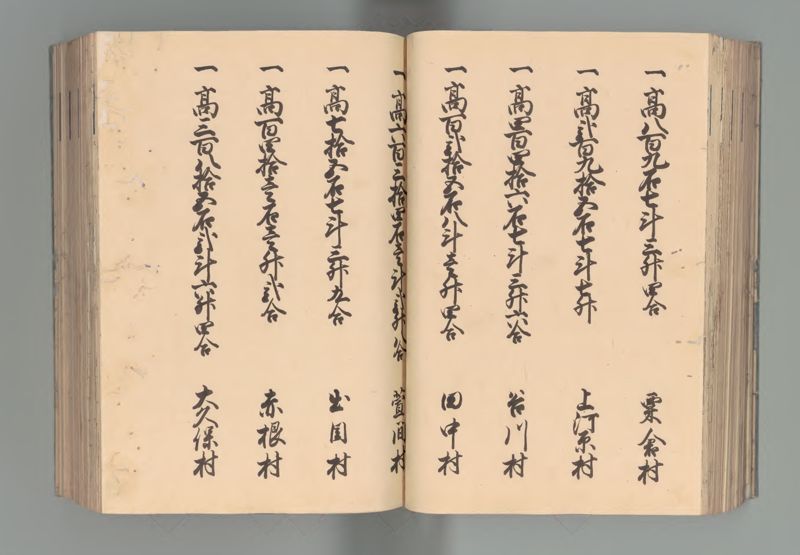 一高八百九石七斗三升四合 粟倉村
一高弐百九拾五石七斗七升 上河原村
一高四百四拾六石七斗三升六合 谷川村
一高百弐拾五石八斗壱升四合 田中村
一高六百三拾四石壱斗弐升八合 萱間村
一高七拾五石七斗三升九合 出国村
一高百四拾壱石壱升弐合 赤根村
一高三百八拾五石弐斗六升四合 大久保村